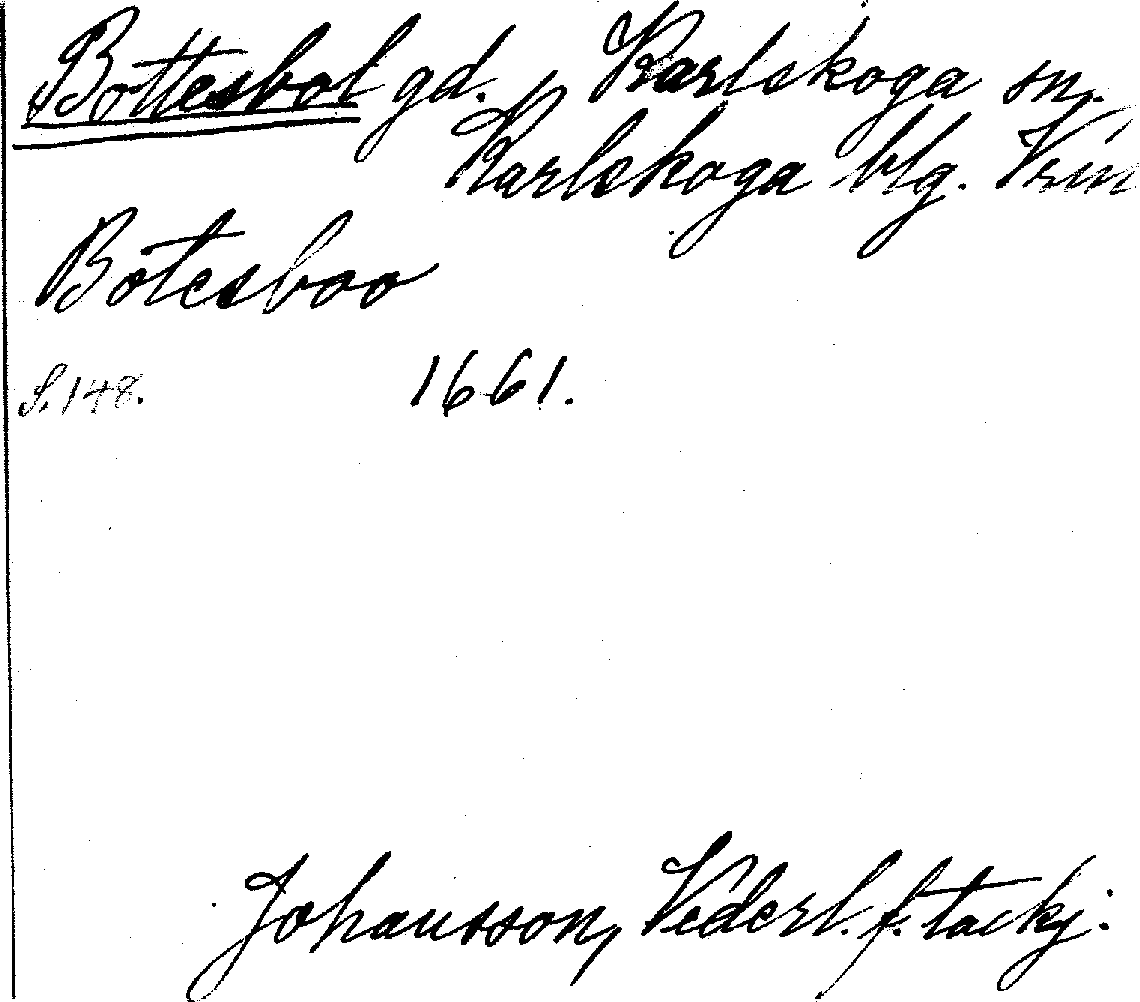 Bottesbol gd. Karlskoga sn.
Karlskoga blg. Vrm
Botesboo
S. 148. 1661.
Johansson, Vederl. f. tackj.